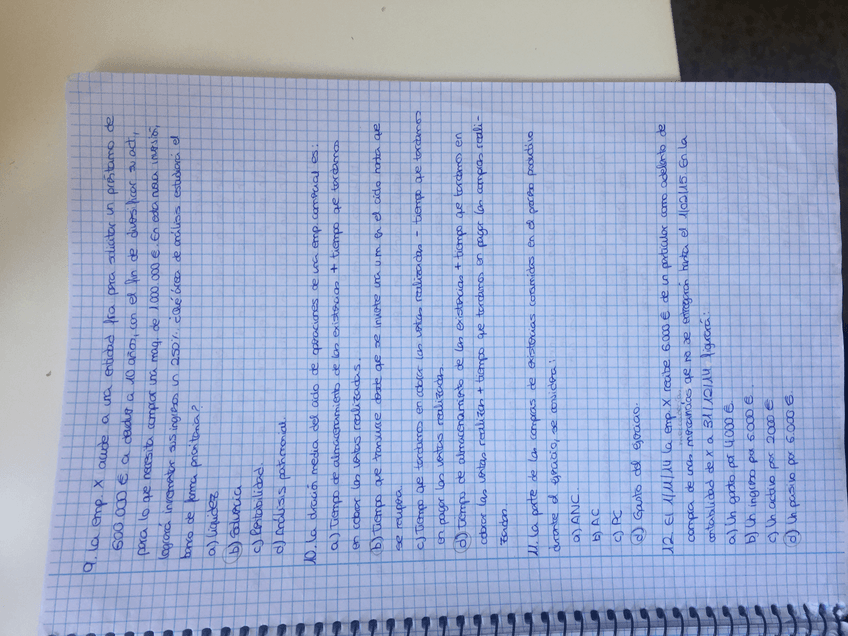 9. La emp. X acude a una entidad fra para solicitar un préstamo de
600.000 € a devolver a 10 años, con el fin de diversificar su act,
para lo que necesita comprar una maq. de 1.000.000 €. En esta nueva inversión,
logrará incrementar sus ingresos un 250%. ¿Qué área de análisis estudiará el
banco de forma prioritaria?
a) Liquidez
b) Solvencia
c) Rentabilidad
d) Análisis patrimonial.
10. La duración media del ciclo de operaciones de una emp comercial es:
a) Tiempo de almacenamiento de las existencias + tiempo que tardamos
en cobrar las ventas realizadas.
b) Tiempo que transcurre desde que se invierte una u.m en el ciclo hasta que
se recupera
c) Tiempo que tardamos en cobrar las ventas realizadas - tiempo que tardamos
en pagar las ventas realizadas
d) Tiempo de almacenamiento de las existencias + tiempo que tardamos en
cobrar las ventas realizan + tiempo que tardamos en pagar las compras reali-
zadas
11. La parte de las compras de existencias consumidas en el proceso productivo
durante el ejercicio, se considera:
a) ANC
b) AC
c) PC
d) Gasto del ejercicio.
12. El 1/11/14 la emp. X recibe 6.000 € de un particular como adelanto de
compra de unas mercancías que no se entregará hasta el 1/02/15. En la
contabilidad de X a 31/12/14 figurará:
a) Un gasto por 4.000 €
b) Un ingreso por 6.000 €.
c) Un activo por 2000 €
d) Un pasivo por 6.000 €.